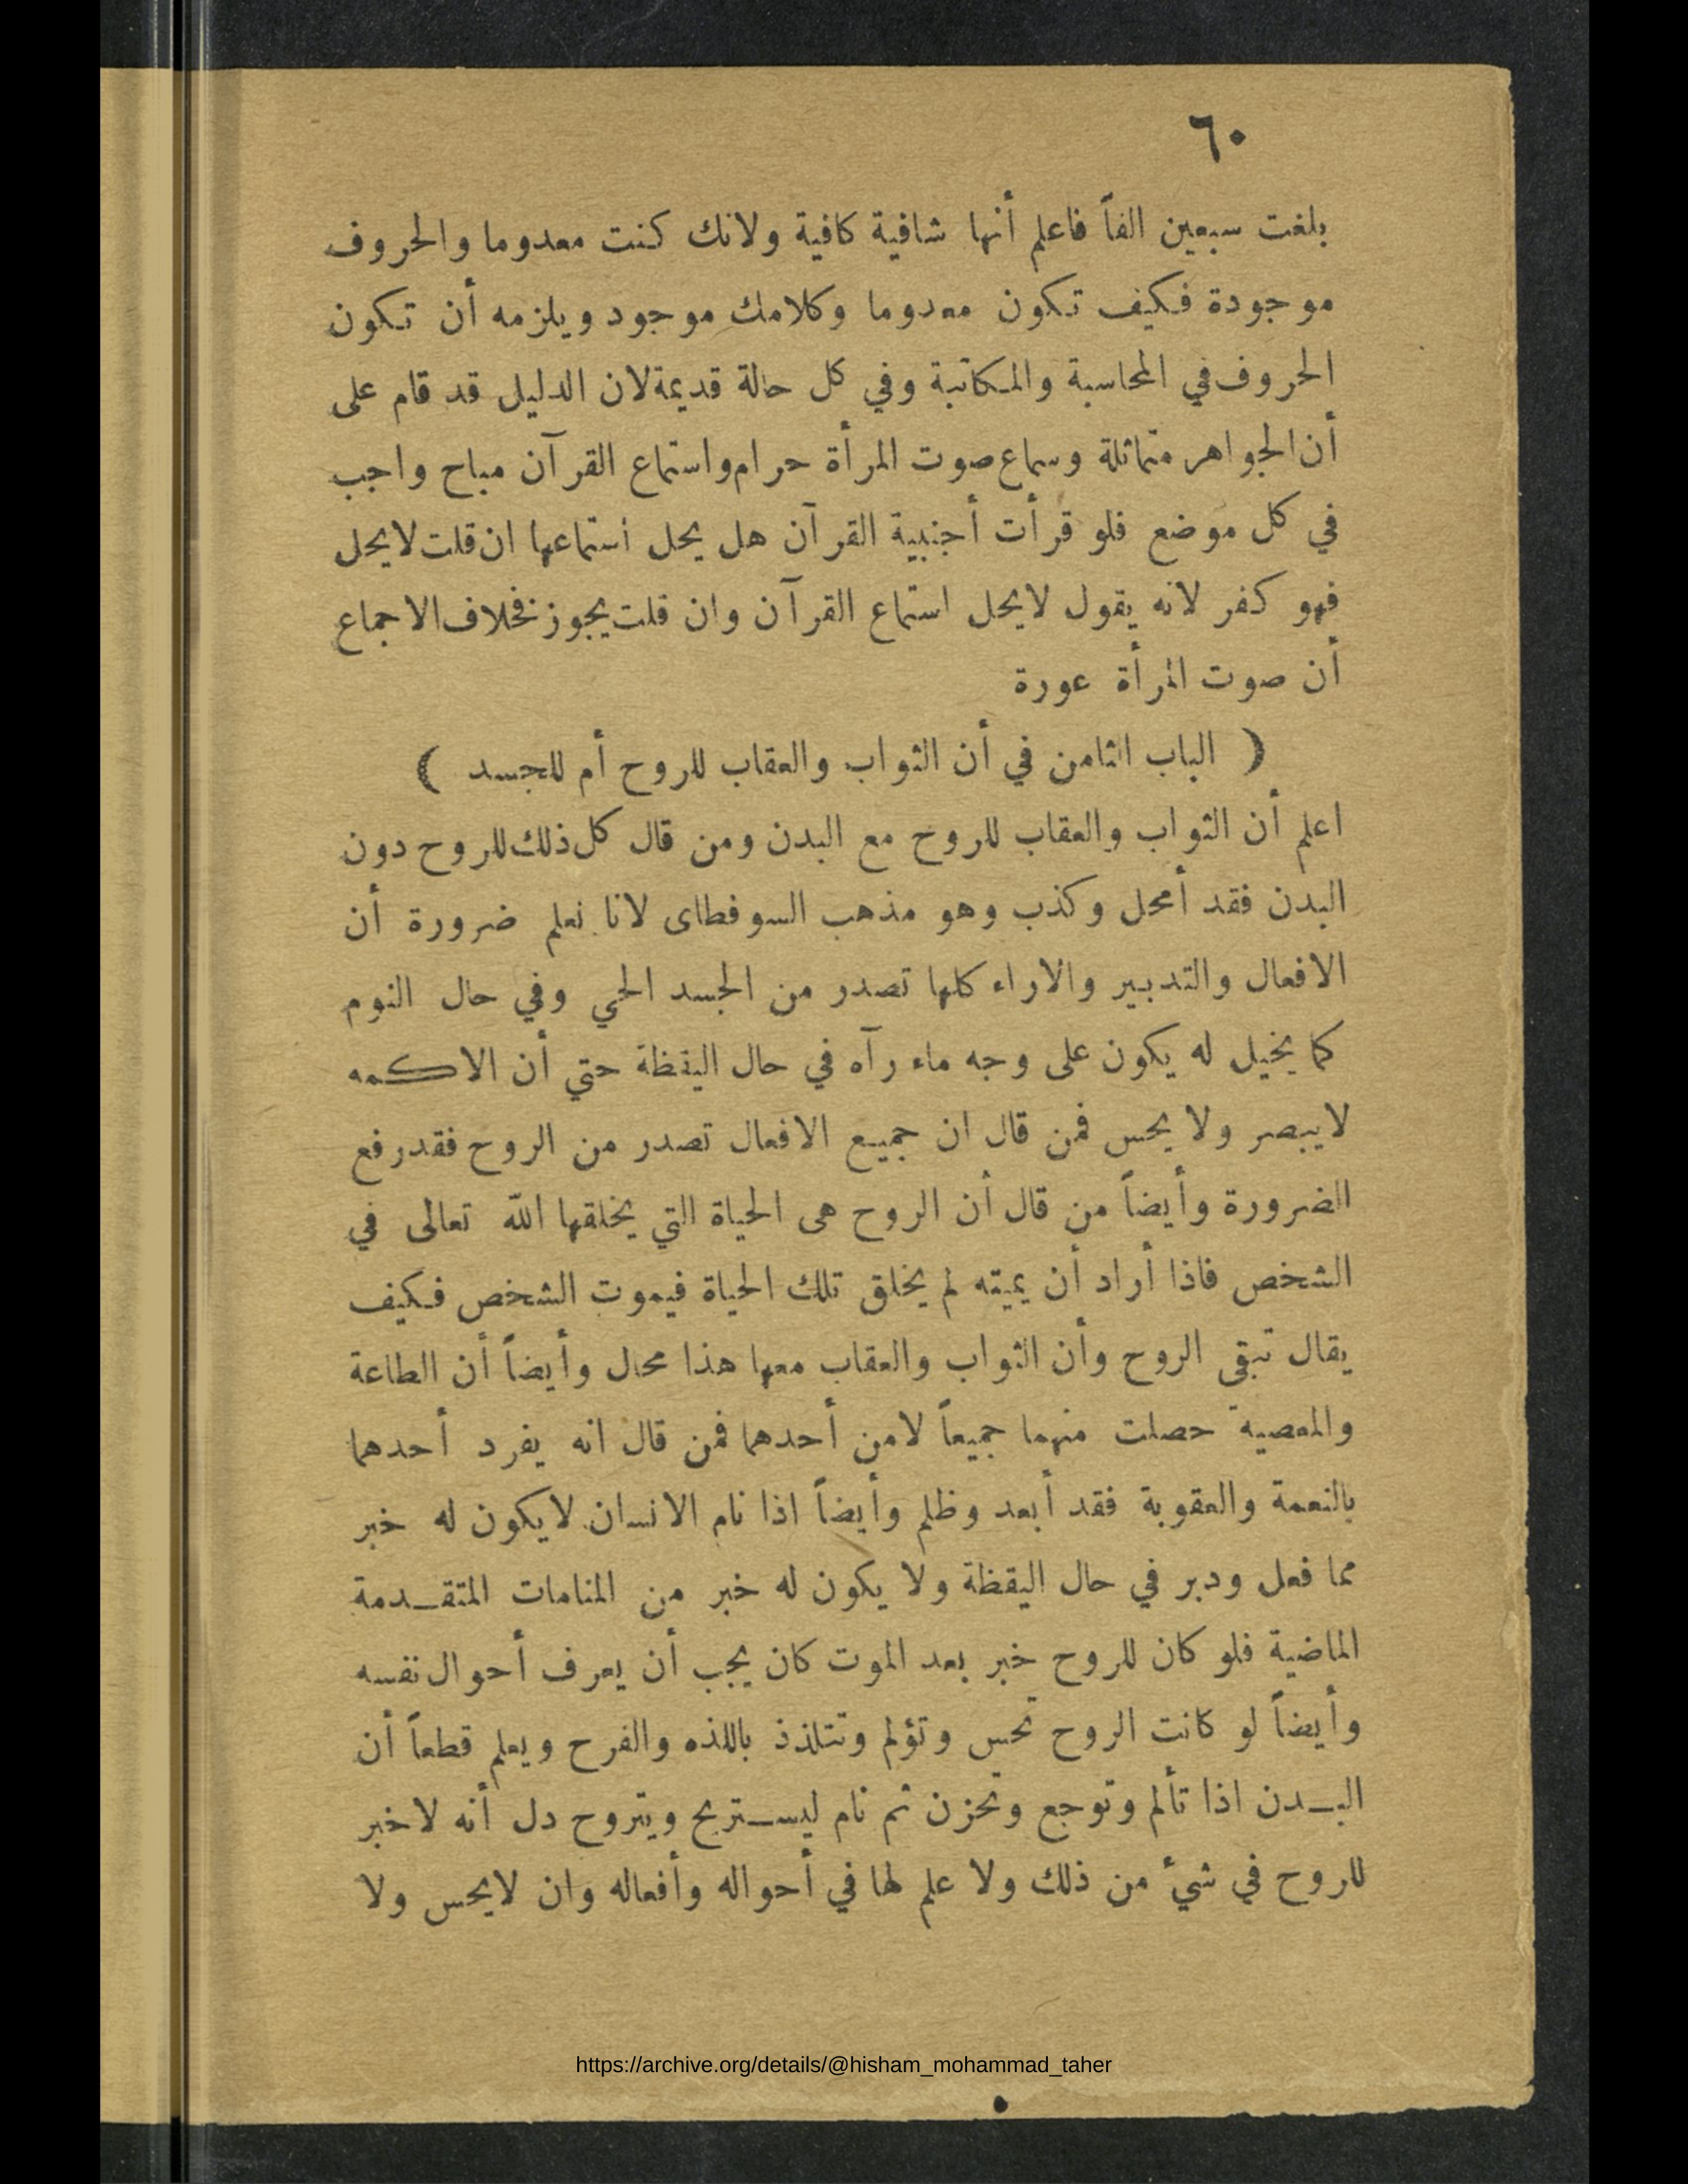 ٦٠
بلغت سبعين الفاً فاعلم أنها شافية كافية ولانك كنت معدوما والحروف
موجودة فكيف تكون معدوما وكلامك موجود ويلزمه أن تكون
الحروف في المحاسبة والمكاتبة وفي كل حالة قديمة لان الدليل قد قام على
أن الجواهر متماثلة وسماع صوت المرأة حرام واستماع القرآن مباح واجب
في كل موضع فلو قرأت أجنبية القرآن هل يحل استماعها ان قلت لايحل
فهو كفر لانه يقول لايحل استماع القرآن وان قلت يجوز فخلاف الاجماع
أن صوت المرأة عورة
( الباب الثامن في أن الثواب والعقاب للروح أم للجسد )
اعلم أن الثواب والعقاب للروح مع البدن ومن قال كل ذلك للروح دون
البدن فقد أمحل وكذب وهو مذهب السوفطاى لانا نعلم ضرورة أن
الافعال والتدبير والاراء كلها تصدر من الجسد الحي وفي حال النوم
كما يخيل له يكون على وجه ماء رآه في حال اليقظة حتي أن الاكمه
لايبصر ولا يحس فمن قال ان جميع الافعال تصدر من الروح فقد رفع
الضرورة وأيضاً من قال أن الروح هى الحياة التي يخلقها الله تعالى في
الشخص فاذا أراد أن يميته لم يخلق تلك الحياة فيموت الشخص فكيف
يقال تبقى الروح وأن الثواب والعقاب معها هذا محال وأيضاً أن الطاعة
والمعصية حصلت منهما جميعاً لامن أحدهما فمن قال انه يفرد أحدهما
بالنعمة والعقوبة فقد أبعد وظلم وأيضاً اذا نام الانسان لايكون له خبر
مما فعل ودبر في حال اليقظة ولا يكون له خبر من المنامات المتقـدمة
الماضية فلو كان للروح خبر بعد الموت كان يجب أن يعرف أحوال نفسه
وأيضاً لو كانت الروح تحس وتؤلم وتتلذذ باللذه والفرح ويعلم قطعاً أن
البـدن اذا تألم وتوجع وتحزن ثم نام ليسـتريح ويتروح دل أنه لاخبر
للروح في شيء من ذلك ولا علم لها في أحواله وأفعاله وان لايحس ولا
https://archive.org/details/@hisham_mohammad_taher